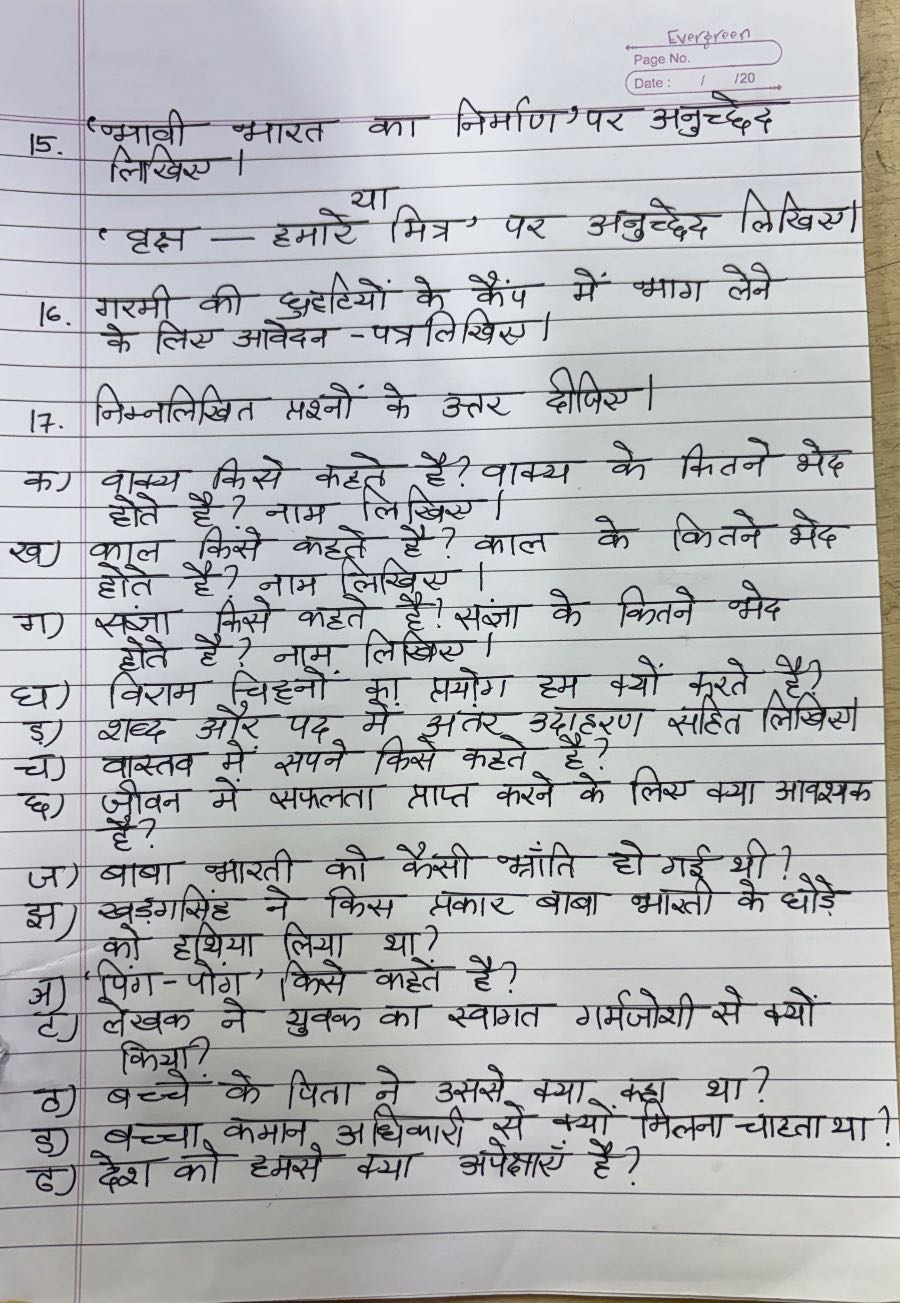 Evergreen
Page No.
Date : / /20
15. 'भावी भारत का निर्माण' पर अनुच्छेद
लिखिए।
या
'वृक्ष — हमारे मित्र' पर अनुच्छेद लिखिए।
16. गरमी की छुट्टियों के कैंप में भाग लेने
के लिए आवेदन - पत्र लिखिए।
17. निम्नलिखित प्रश्नों के उत्तर दीजिए।
क) वाक्य किसे कहते है? वाक्य के कितने भेद
होते है? नाम लिखिए।
ख) काल किसे कहते है? काल के कितने भेद
होते है? नाम लिखिए।
ग) संज्ञा किसे कहते है? संज्ञा के कितने भेद
होते है? नाम लिखिए।
घ) विराम चिह्नों का प्रयोग हम क्यों करते है?
ड़) शब्द और पद में अंतर उदाहरण सहित लिखिए।
च) वास्तव में सपने किसे कहते है?
छ) जीवन में सफलता प्राप्त करने के लिए क्या आवश्यक
है?
ज) बाबा भारती को कैसी भ्राँति हो गई थी?
झ) खड़गसिंह ने किस प्रकार बाबा भारती के घोड़े
को हथिया लिया था?
ञ) 'पिंग - पोंग' किसे कहते है?
ट) लेखक ने युवक का स्वागत गर्मजोशी से क्यों
किया?
ठ) बच्चे के पिता ने उससे क्या कहा था?
ड) बच्चा कमान अधिकारी से क्यों मिलना चाहता था?
ढ) देश को हमसे क्या अपेक्षाएँ है?